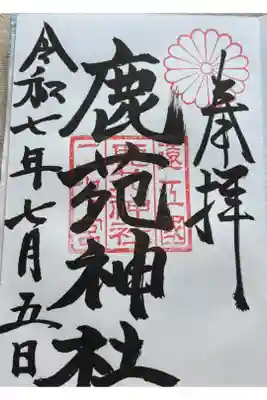 奉拝
鹿苑神社
令和七年七月五日